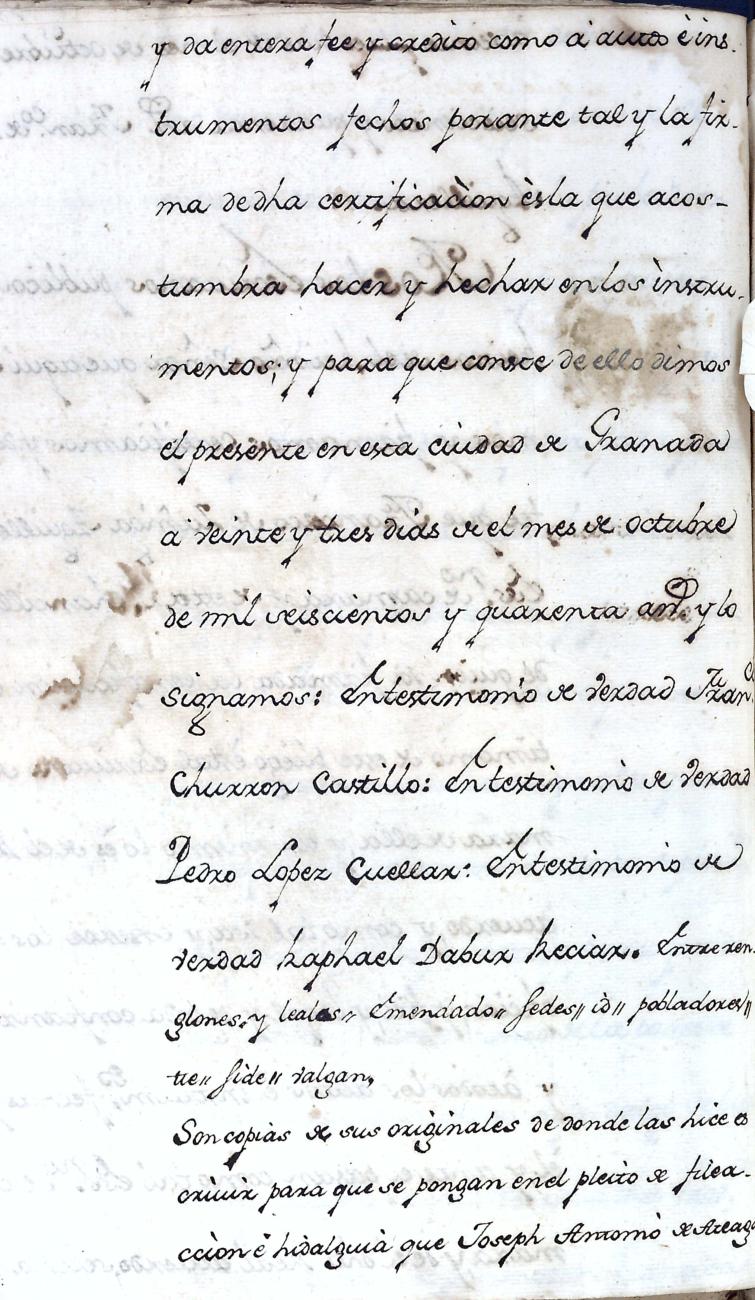 y da entera fee y credito como á autos é ins-
trumentos fechos por ante tal y la fir-
ma de dha certificaciòn ès la que acos-
tumbra hacer y hechar en los ìnstru-
mentos; y para que conste de ello dimos
el presente en esta ciudad de Granada
a veinte y tres dias de el mes de octubre
de mil seiscientos y quarenta años y lo
signamos: En testimonio de verdad Franco
Churron Castillo: En testimonio de verdad
Pedro Lopez Cuellar: En testimonio de
verdad Raphael Dabur Reciar. Entreren-
glones. y leales〃 Emendado〃 sedes〃 iò〃 pobladores〃
tie〃 side〃 valgan.
Son copias de sus originales de donde las hice es
crivir para que se pongan en el pleito de filea-
cciòn è hidalguia que Joseph Antonio de Areag